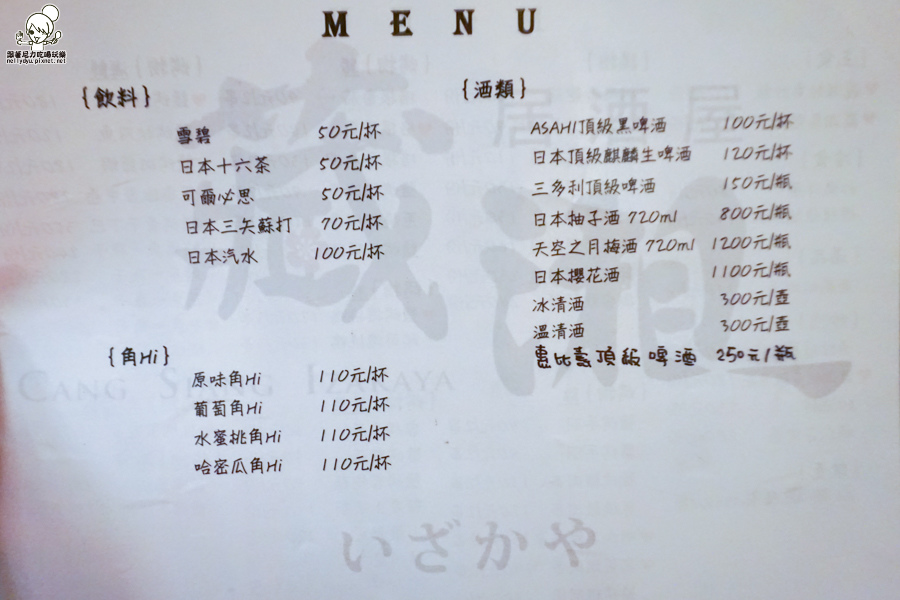 跟著尼力吃喝玩樂
nellydyu.pixnet.net
MENU
{飲料}
雪碧 50元/杯
日本十六茶 50元/杯
可爾必思 50元/杯
日本三矢蘇打 70元/杯
日本汽水 100元/杯
{角Hi}
原味角Hi 110元/杯
葡萄角Hi 110元/杯
水蜜桃角Hi 110元/杯
哈密瓜角Hi 110元/杯
{酒類}
ASAHI頂級黑啤酒 100元/杯
日本頂級麒麟生啤酒 120元/杯
三多利頂級啤酒 150元/瓶
日本柚子酒 720ml 800元/瓶
天空之月梅酒 720ml 1200元/瓶
日本櫻花酒 1100元/瓶
冰清酒 300元/壺
溫清酒 300元/壺
惠比壽頂級啤酒 250元/瓶
居酒屋
藏湘
CANG
IZAKAYA
いざかや